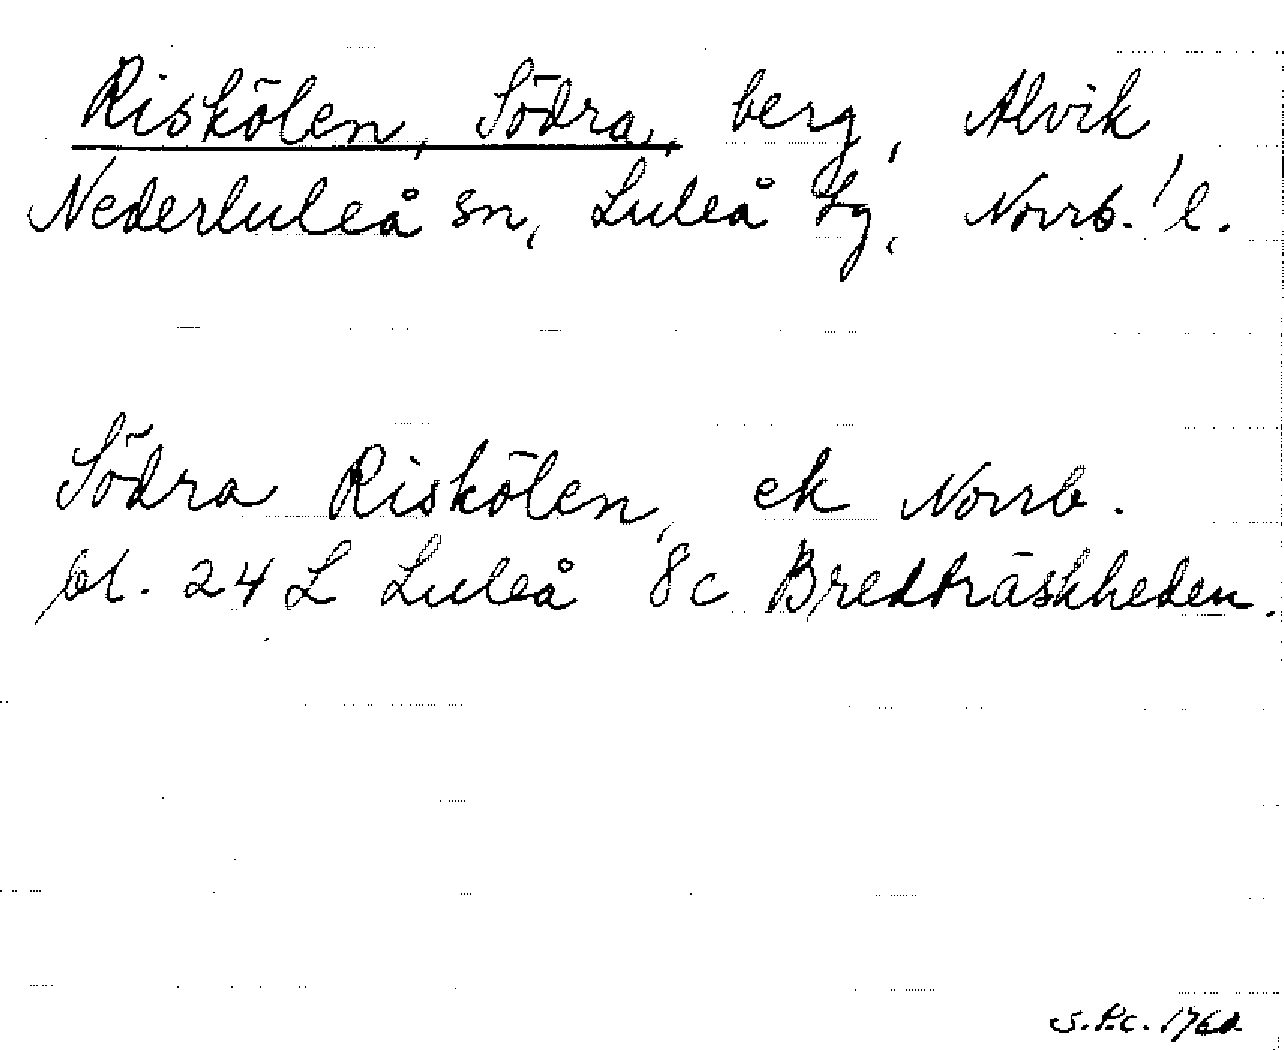 Riskölen, Södra, berg, Alvik,
Nederluleå sn, Luleå tg, Norrb. l.
Södra Riskölen, ek Norrb.
bl. 24 L Luleå 8c Bredträskheden.